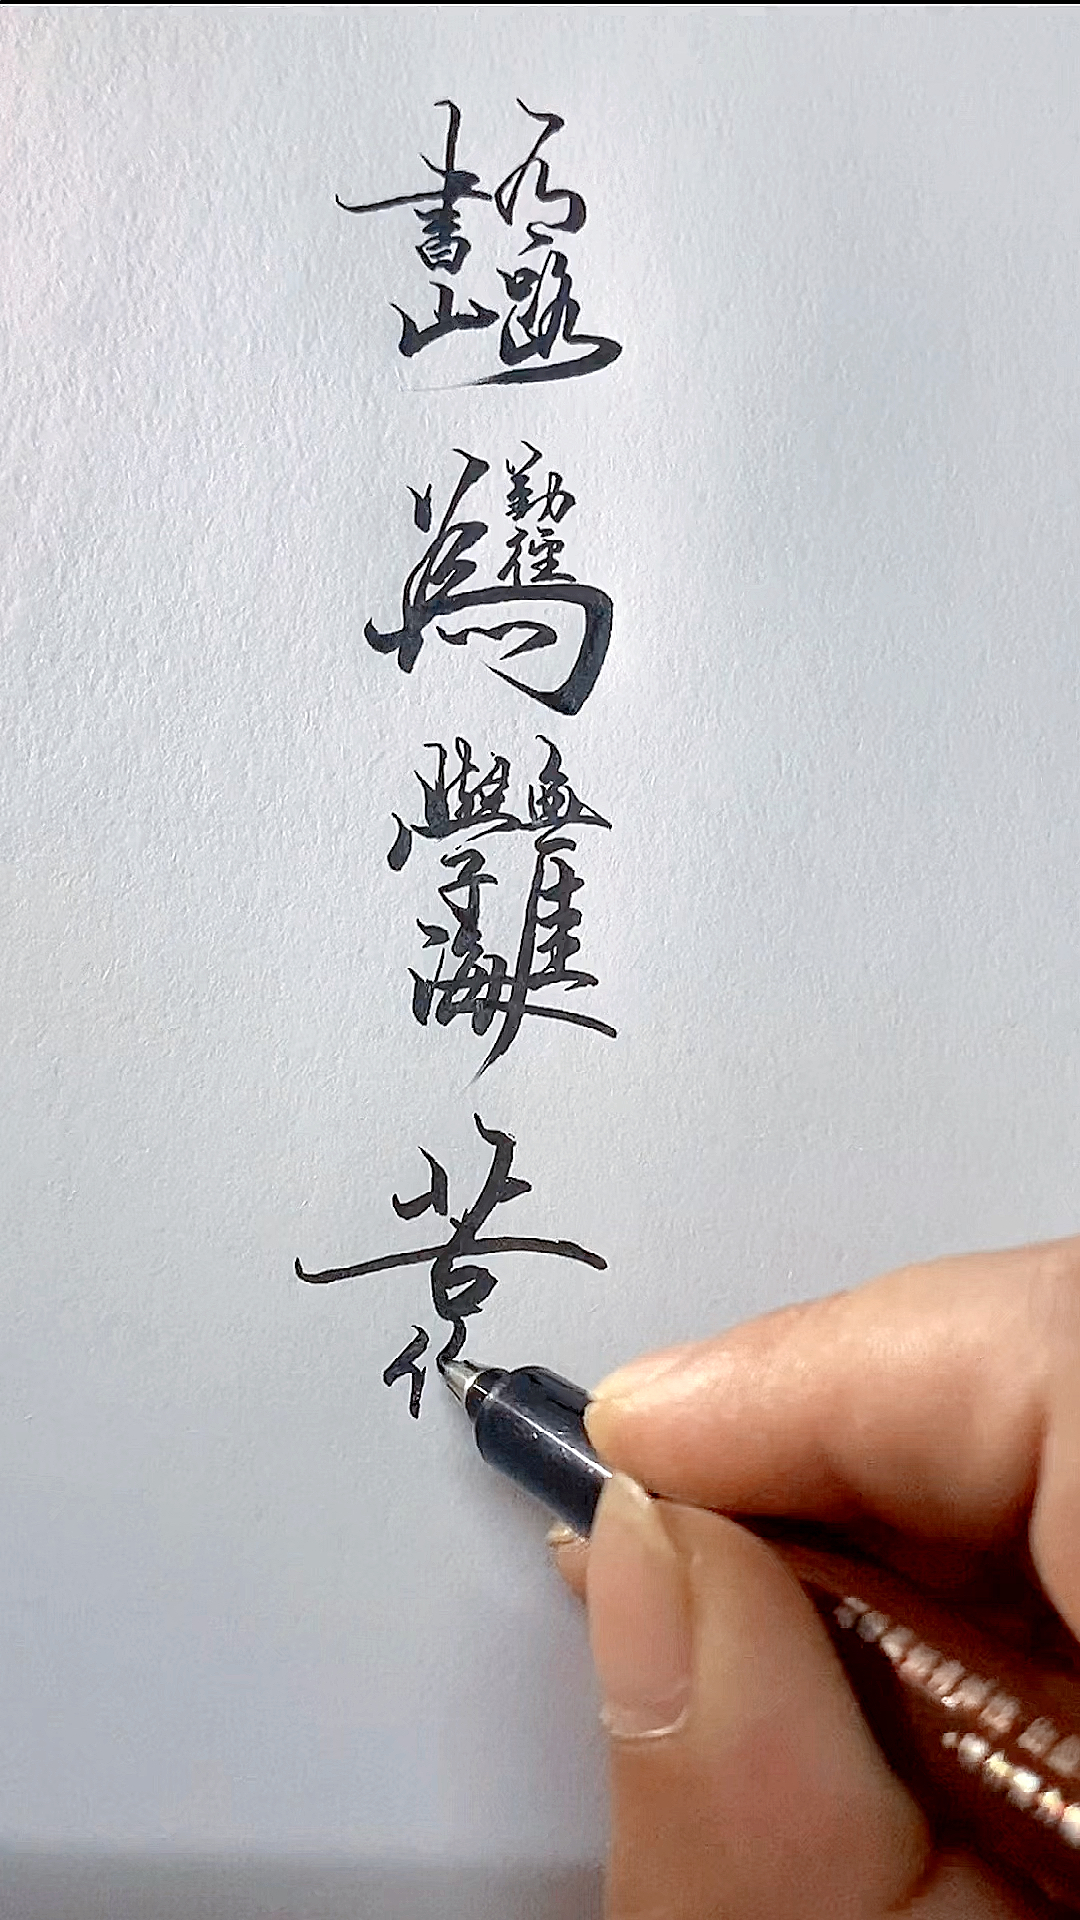 書山有路
勤為徑
學海無涯
苦作